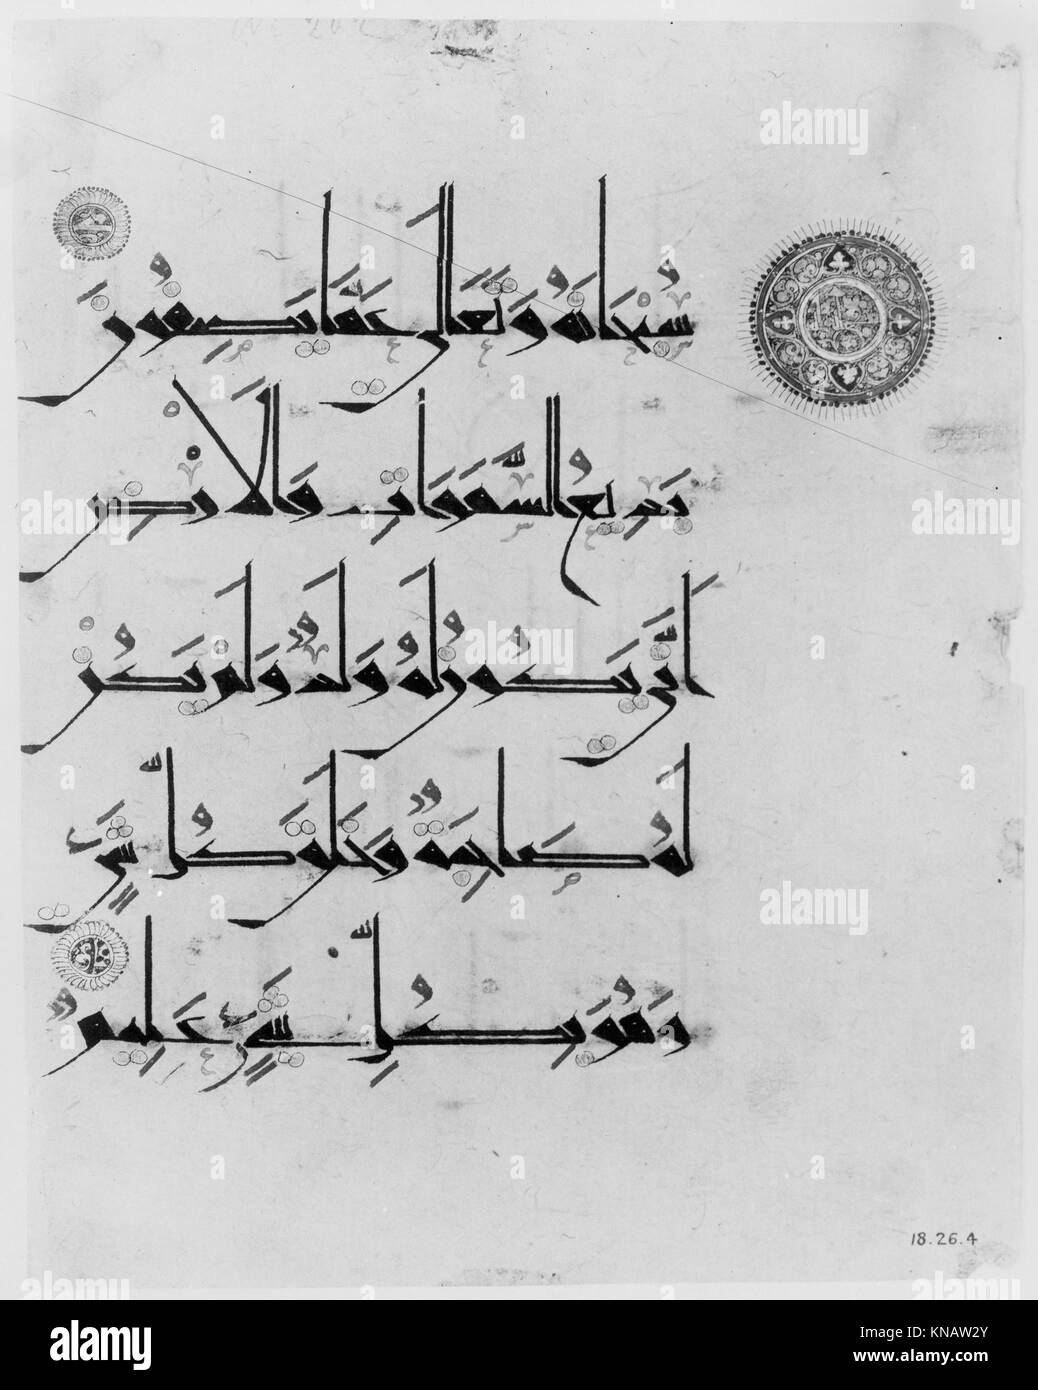 سُبْحَانَهُ وَتَعَالَى عَمَّا يَصِفُونَ
بَدِيعُ السَّمَوَاتِ وَالْأَرْضِ
أَنَّى يَكُونُ لَهُ وَلَدٌ وَلَمْ تَكُنْ
لَهُ صَاحِبَةٌ وَخَلَقَ كُلَّ شَيْءٍ
وَهُوَ بِكُلِّ شَيْءٍ عَلِيمٌ
18.26.4
alamy
Image ID: KNAW2Y
www.alamy.com